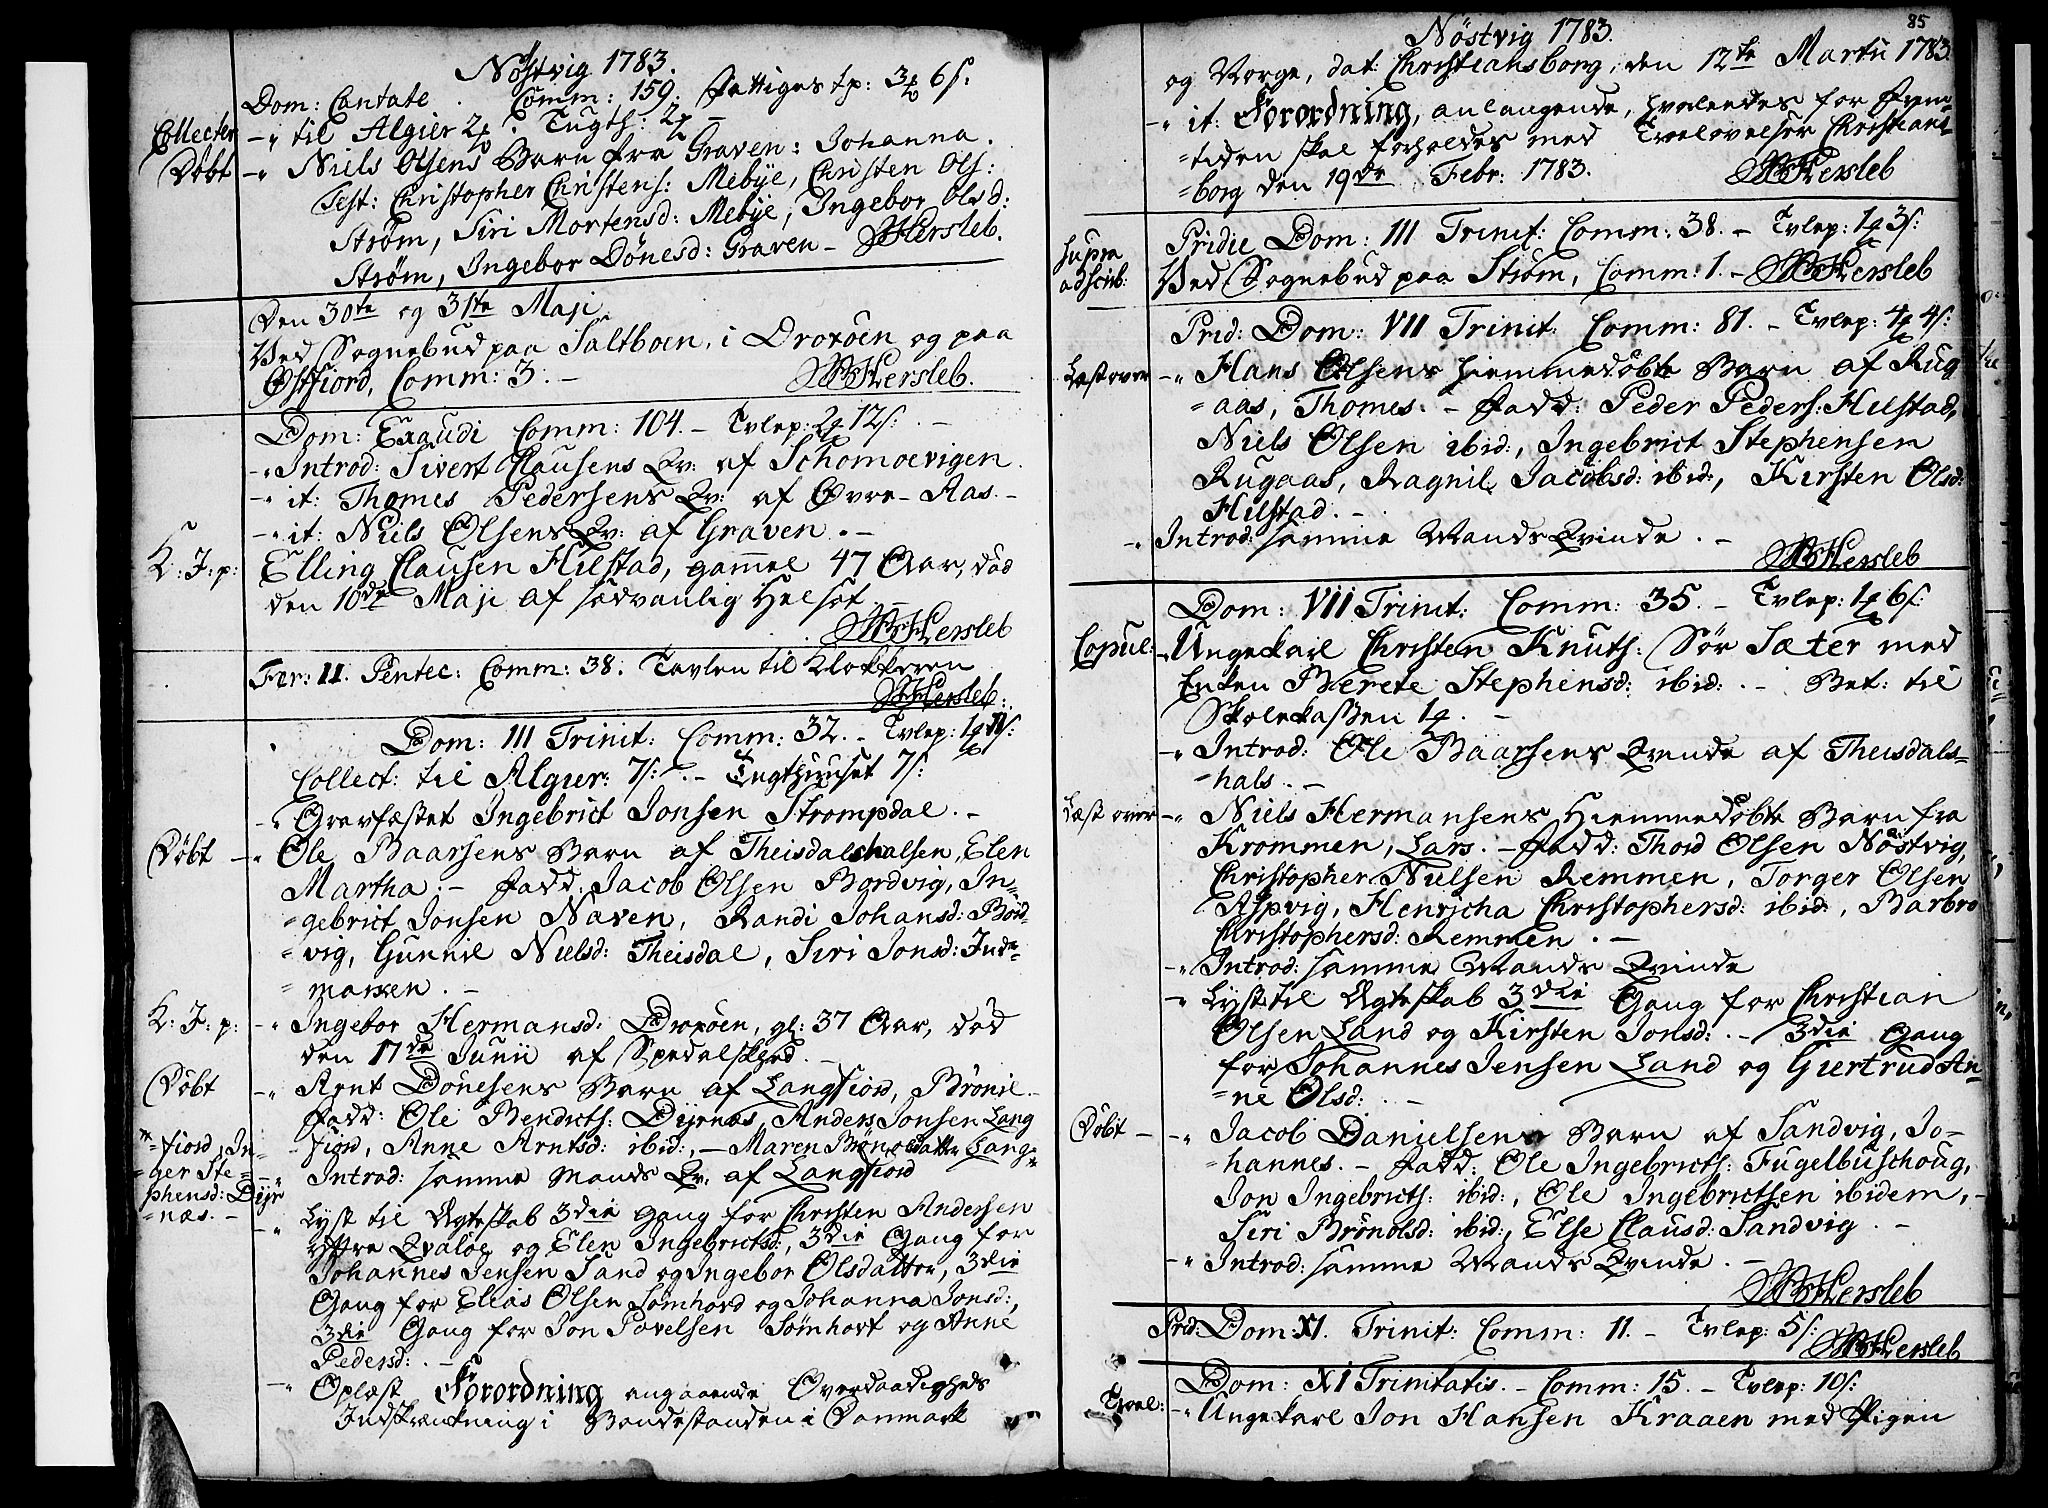 Nöstvig 1783.
Dom: Cantate. Comm: 159. Fattiges tp: 3 6 s:
Collecter -" til Algier 2 . Tugth: 2 -
Döbt -" Niels Olsens Barn fra Graven: Johanna.
Test: Christopher Christens: Mebÿe, Christen Ols:
Strøm, Siri Mortensd: Mebÿe, Ingebor Olsd:
Strøm, Ingebor Dönesd: Graven - Hersleb.
Den 30te og 31te Maji
Ved Sognebud paa Saltboen, i Droxöen og paa
Østfiord, Comm: 3. - Hersleb.
Dom: Exaudi Comm: 104. - Tvlep: 2 12 s: -
-" Introd: Sivert Clausens Qv: af Schomoevigen.
-" it: Thomes Pedersens Qv: af Øvre-Aas. -
-" it: Niels Olsens Qv: af Graven. -
K: J: p: Elling Clausen Hilstad, gamel 47 Aar, död
den 10de Maji af sædvanlig Helsot. -
Hersleb
Fer: II. Pentec: Comm: 38. Tavlen til Klokkeren
Hersleb.
Dom: III Trinit: Comm: 32. - Tvlep: 1 s:
Collect: til Algier: 7 s: -. - Tugthuuset 7 s:
-" Gravfæstet Ingebrict Jonsen Strompdal. -
Döbt -" Ole Baarsens Barn af Theisdalshalsen, Elen
Martha. - Fadd: Jacob Olsen Bordvig, In=
=gebrict Jonsen Naven, Randi Johansd: Bord=
=vig, Gunnil Nielsd: Theisdal, Siri Jonsd: Ind=
=marken. -
K: J: p: -" Ingebor Hermansd: Droxöen, gl: 37 Aar, död
den 17de Junii af Spedalskhed. -
Döbt -" Arnt Dönesens Barn af Langfiord, Brönil -
Fadd: Ole Bendricts: Dyrnes, Anders Jonsen Lang
fiord, Anne Arntsd: ibid:, - Maren Lang=
=fiord, In=
=ger Ste=
phensd: Dyr
=næs. -
-" Introd: samme Mands Qv: af Langfiord
-" Lyst til Ægteskab 3die Gang for Christen Andersen
Yttre Qvaløe og Elen Ingebrictsd:, 3die Gang for
Johannes Jensen Sand og Ingebor Olsdatter, 3die
Gang for Elias Olsen Sömhovd og Johanna Jonsd:,
3die Gang for Jon Povelsen Sömhovt og Anne
Pedersd: . -
-" Oplæst Forordning angaaende Overdaadigheds
Indskrænkning i Bondestanden i Danmark
85
Nöstvig 1783.
og Norge, dat: Christiansborg, den 12te Martii 1783
-" it: Forordning, anlangende, hvorledes for Frem=
=tiden skal forholdes med Trolovelser Christians=
=borg den 19de Febr: 1783. Hersleb
supra
adscrib:
Pridie Dom: III Trinit: Comm: 38. - Tvlep: 1 3 s:
Ved Sognebud paa Strøm, Comm: 1. - Hersleb
Prid: Dom: VII Trinit: Comm: 81. - Tvlep: 4 4 s:
Læst over -" Hans Olsens hiemmedöbte Barn af Rug
=aas, Thomes. - Fadd: Peder Peders: Hilstad,
Niels Olsen ibid:, Ingebrict Stephensen
Rugaas, Ragnil Jacobsd: ibid:, Kirsten Olsd:
Hilstad. -
-" Introd: samme Mands Qvinde. -
Hersleb
Dom: VII Trinit: Comm: 35. - Tvlep: 1 6 s:
Copul: -" Ungekarl Christen Knuts: Sör Sæter med
Enken Berete Stephensd: ibid: . - Bet: til
Skolekassen 1 . -
-" Introd: Ole Baarsens Qvinde af Theisdals=
=hals. -
Læst over -" Niels Hermansens, Hiemmedöbte Barn fra
Krommen, Lars. - Fadd: Thord Olsen Nöstvig,
Christopher Nielsen Remmen, Torger Olsen
Aspvig, Henricha Christophersd: ibid:, Barbro
Christophersd: Remmen. -
-" Introd: samme Mands Qvinde
-" Lyst til Ægteskab 3die Gang for Christian
Olsen Land og Kirsten Jonsd: . - 3die Gang
for Johannes Jensen Sand og Giertrud An=
=ne Olsd: . -
Döbt -" Jacob Danielsens Barn af Sandvig, Jo=
=hannes. - Fadd: Ole Ingebricts: Fugelbuschoug,
Jon Ingebricts: ibid:, Ole Ingebrictsen ibidem, -
Siri Brönolsd: ibid:, Else Clausd: Sandvig. -
-" Introd: samme Mands Qvinde. -
Hersleb
Prid: Dom: XI. Trinit: Comm: 11. - Tvlep: 5 s: Hersleb
Dom: XI Trinitatis. - Comm: 15. - Tvlep: 10 s:
Trol: -" Ungekarl Jon Hansen Kraaen med Pigen